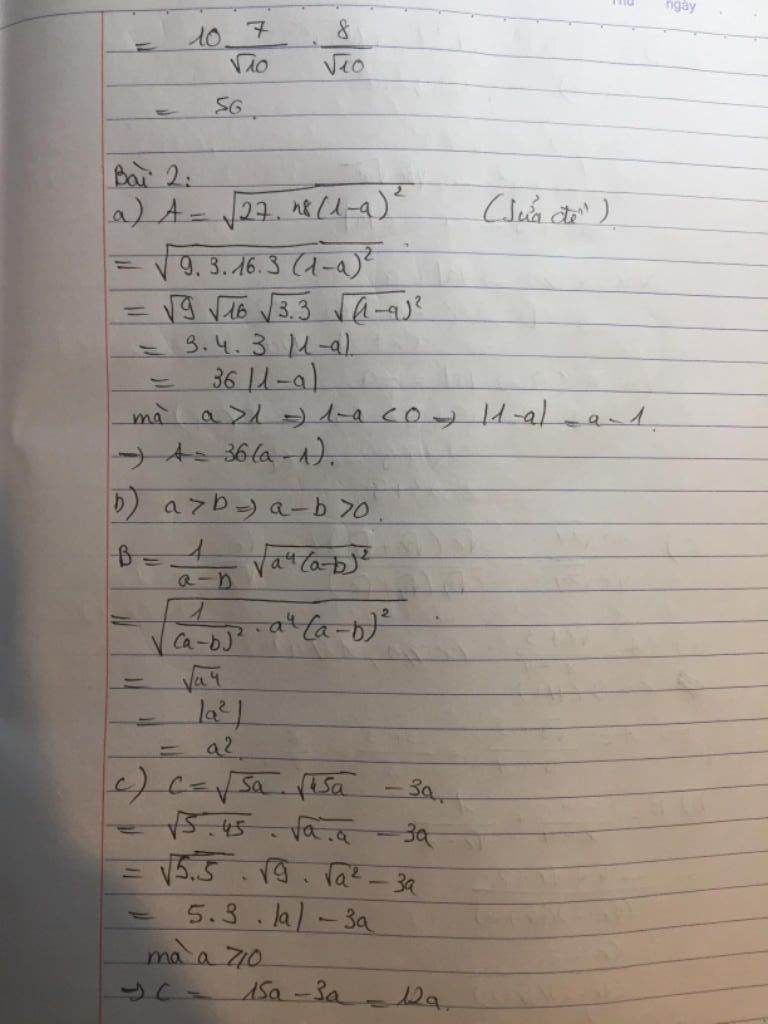 ngày
= 10 7/√10 . 8/√10
= 56.
Bài 2:
a) A = √(27.48(1-a)²) (Sửa đề)
= √(9.3.16.3(1-a)²)
= √9 √16 √(3.3) √(1-a)²
= 3.4.3 |1-a|
= 36|1-a|
mà a>1 => 1-a <0 → |1-a| = a-1.
→ A = 36(a-1).
b) a>b => a-b >0.
B = 1/(a-b) √(a⁴(a-b)²)
= √(1/(a-b)² . a⁴(a-b)²)
= √a⁴
= |a²|
= a².
c) C = √5a . √45a - 3a.
= √5.45 . √a.a - 3a
= √5.5 . √9 . √a² - 3a
= 5.3 . |a| - 3a
mà a ⩾0
→ C = 15a - 3a = 12a.